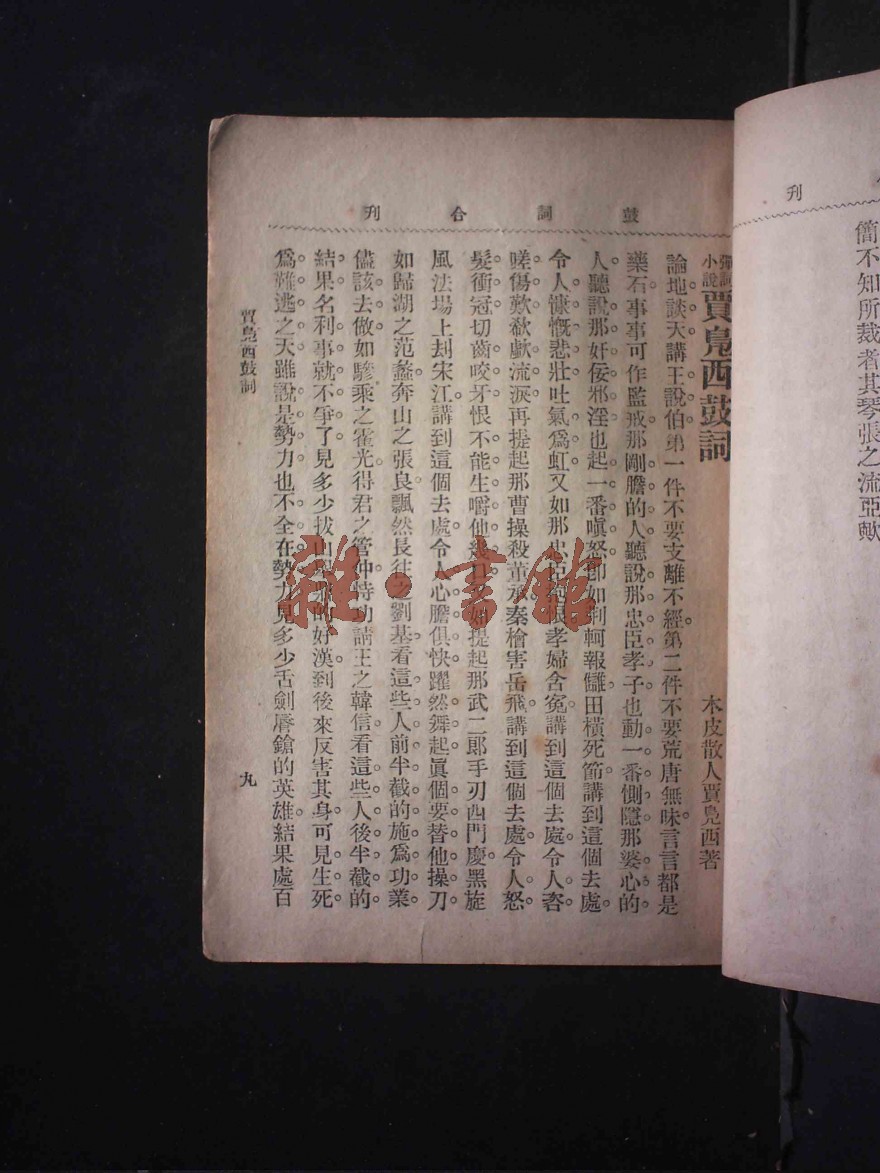 刊
簡不知所裁者其琴張之流亞歟
鼓詞合刊
彈詞小說
賈鳧西鼓詞
木皮散人賈鳧西著
論地談天講王說伯。第一件不要支離不經。第二件不要荒唐無味。言言都是
藥石。事事可作監戒。那剛膽的人。聽說那忠臣孝子。也動一番惻隱。那婆心的
人。聽說那奸佞邪淫。也起一番嗔怒。卽如荆軻報讎。田橫死節。講到這個去處。
令人慷慨悲壯。吐氣爲虹。又如那忠臣 恨。孝婦含冤。講到這個去處。令人咨
嗟傷歎。欷歔流淚。再提起那曹操殺董承。秦檜害岳飛。講到這個去處。令人怒
髮衝冠。切齒咬牙。恨不能生嚼他幾 。 如提起那武二郎手刃西門慶。黑旋
風法場上刦宋江。講到這個去處。令人心膽俱快。躍然舞起。眞個要替他操刀。
如歸湖之范蠡。奔山之張良。飄然長往之劉基。看這些人前半截的施爲。功業
儘該去做。如驂乘之霍光。得君之管仲。恃功請王之韓信。看這些人後半截的
結果。名利事就不爭了。見多少拔山 的好漢。到後來反害其身。可見生死。
爲難逃之天。雖說是勢力。也不全在勢力。見多少舌劍唇鎗的英雄。結果處百
賈鳧西鼓詞
九
雜·書館